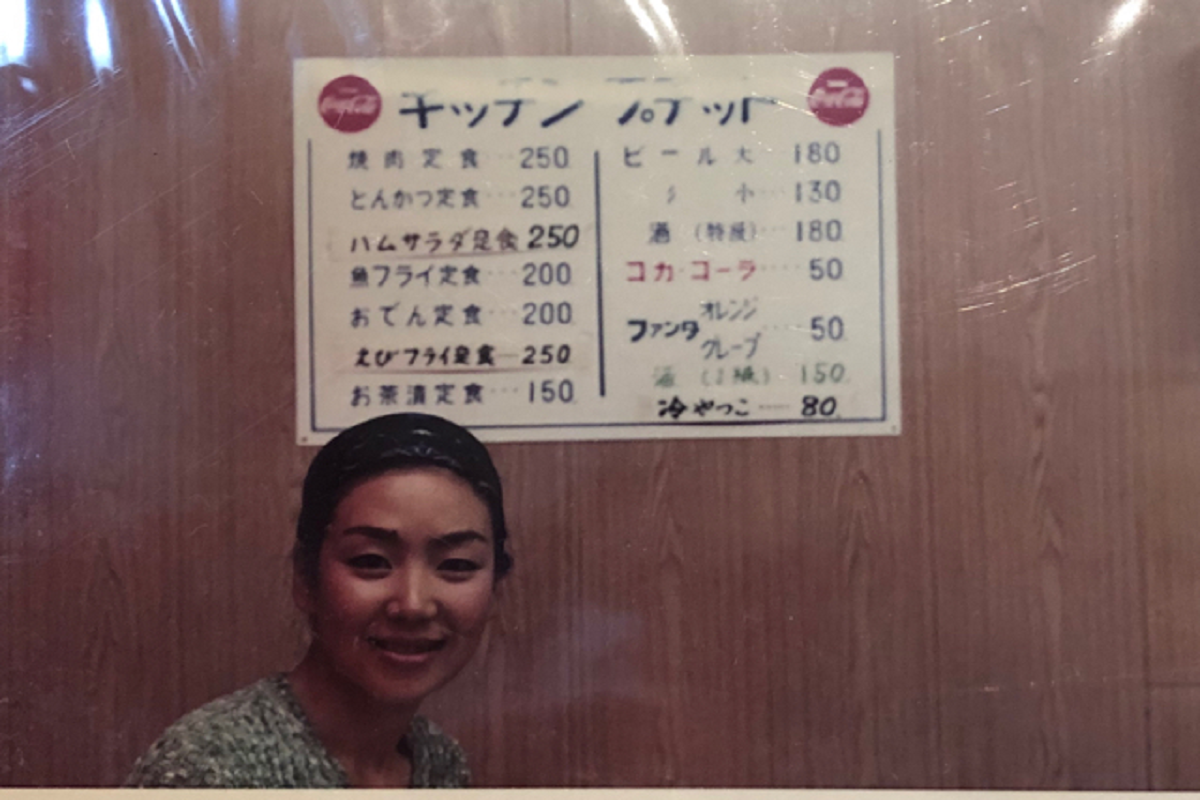 Coca-Cola
キッチン プチット
Coca-Cola
焼肉定食…250
とんかつ定食…250
ハムサラダ定食 250
魚フライ定食…200
おでん定食…200
えびフライ定食…250
お茶漬定食…150
ビール大 180
〃 小…130
酒 (特級)…180
コカ・コーラ…50
ファンタ オレンジ グレープ…50
酒 (1級) 150
冷やっこ……80